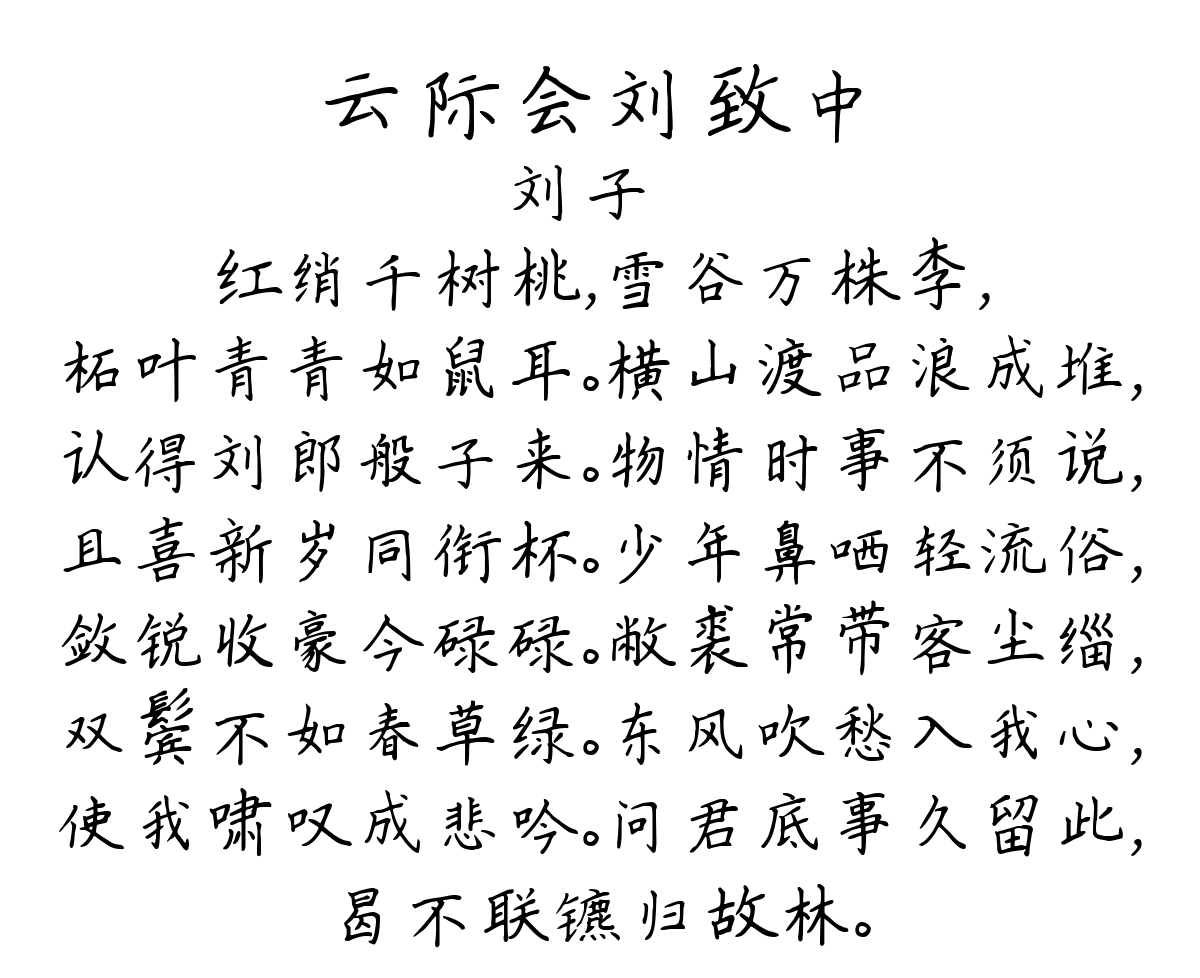 云际会刘致中
刘子
红绡千树桃,雪谷万株李,
柘叶青青如鼠耳。横山渡品浪成堆,
认得刘郎般子来。物情时事不须说,
且喜新岁同衔杯。少年鼻哂轻流俗,
敛锐收豪今碌碌。敝裘常带客尘缁,
双鬓不如春草绿。东风吹愁入我心,
使我啸叹成悲吟。问君底事久留此,
曷不联镳归故林。